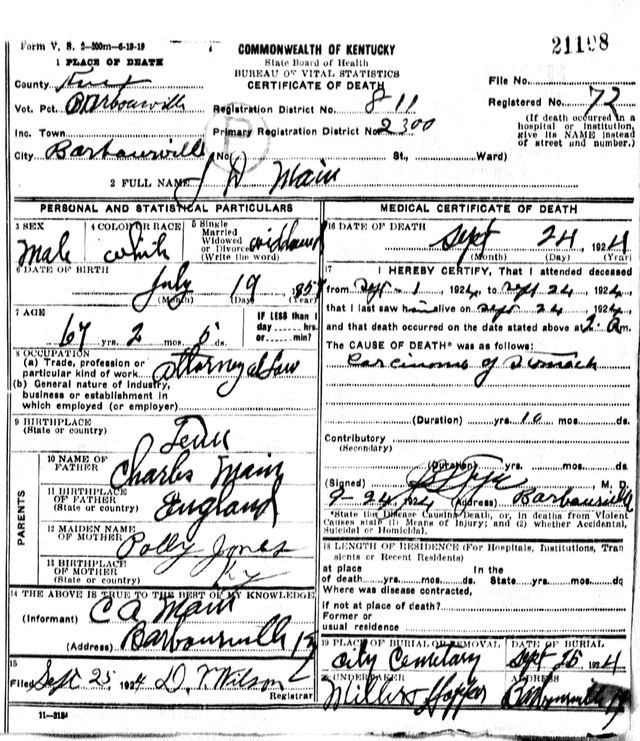 Form V. S. 2-200m-6-19-19
COMMONWEALTH OF KENTUCKY
State Board of Health
BUREAU OF VITAL STATISTICS
CERTIFICATE OF DEATH
21198
1 PLACE OF DEATH
County Knox
Vot. Pct. Barbourville
Inc. Town
City Barbourville
Registration District No. 811
Primary Registration District No. 2300
(No. St., Ward)
File No.
Registered No. 72
(If death occurred in a hospital or institution, give its NAME instead of street and number.)
2 FULL NAME J D Main
PERSONAL AND STATISTICAL PARTICULARS
3 SEX
Male
4 COLOR OR RACE
white
5 Single
Married
Widowed
or Divorced
(Write the word)
widowed
6 DATE OF BIRTH
July 19 1857
(Month) (Day) (Year)
7 AGE
67 yrs. 2 mos. 5 ds.
IF LESS than 1
day hrs.
or min?
8 OCCUPATION
(a) Trade, profession or
particular kind of work attorney at Law
(b) General nature of industry,
business or establishment in
which employed (or employer)
9 BIRTHPLACE
(State or country)
Tenn
PARENTS
10 NAME OF
FATHER
Charles Main
11 BIRTHPLACE
OF FATHER
(State or country)
England
12 MAIDEN NAME
OF MOTHER
Polly Jones
13 BIRTHPLACE
OF MOTHER
(State or country)
Ky
14 THE ABOVE IS TRUE TO THE BEST OF MY KNOWLEDGE
(Informant) C A Main
(Address) Barbourville Ky
15
Filed Sept 25, 1924 Wilson
Registrar
11-3184
MEDICAL CERTIFICATE OF DEATH
16 DATE OF DEATH
Sept 24, 1924
(Month) (Day) (Year)
17
I HEREBY CERTIFY, That I attended deceased
from Sept-1, 1924, to Sept 24, 1924,
that I last saw him alive on Sept 24, 1924,
and that death occurred on the date stated above at 2 a m.
The CAUSE OF DEATH* was as follows:
Carcinoma of Stomach
(Duration) yrs. 10 mos. ds.
Contributory
(Secondary)
(Duration) yrs. mos. ds.
(Signed) M. D.
9-24, 1924 (Address) Barbourville
*State the Disease Causing Death, or, in deaths from Violent
Causes state (1) Means of Injury; and (2) whether Accidental,
Suicidal or Homicidal.
18 LENGTH OF RESIDENCE (For Hospitals, Institutions, Transients or Recent Residents)
at place
of death yrs. mos. ds.
In the
State yrs. mos. ds
Where was disease contracted,
if not at place of death?
Former or
usual residence
19 PLACE OF BURIAL OR REMOVAL
City Cemetary
DATE OF BURIAL
Sept 25, 1924
20 UNDERTAKER
Miller & Hopper
ADDRESS
Barbourville Ky